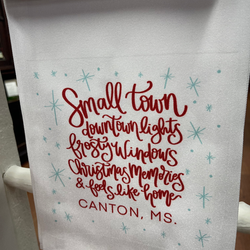 Small town
downtown lights
frosty windows
Christmas Memories
& feels like home
CANTON, MS.